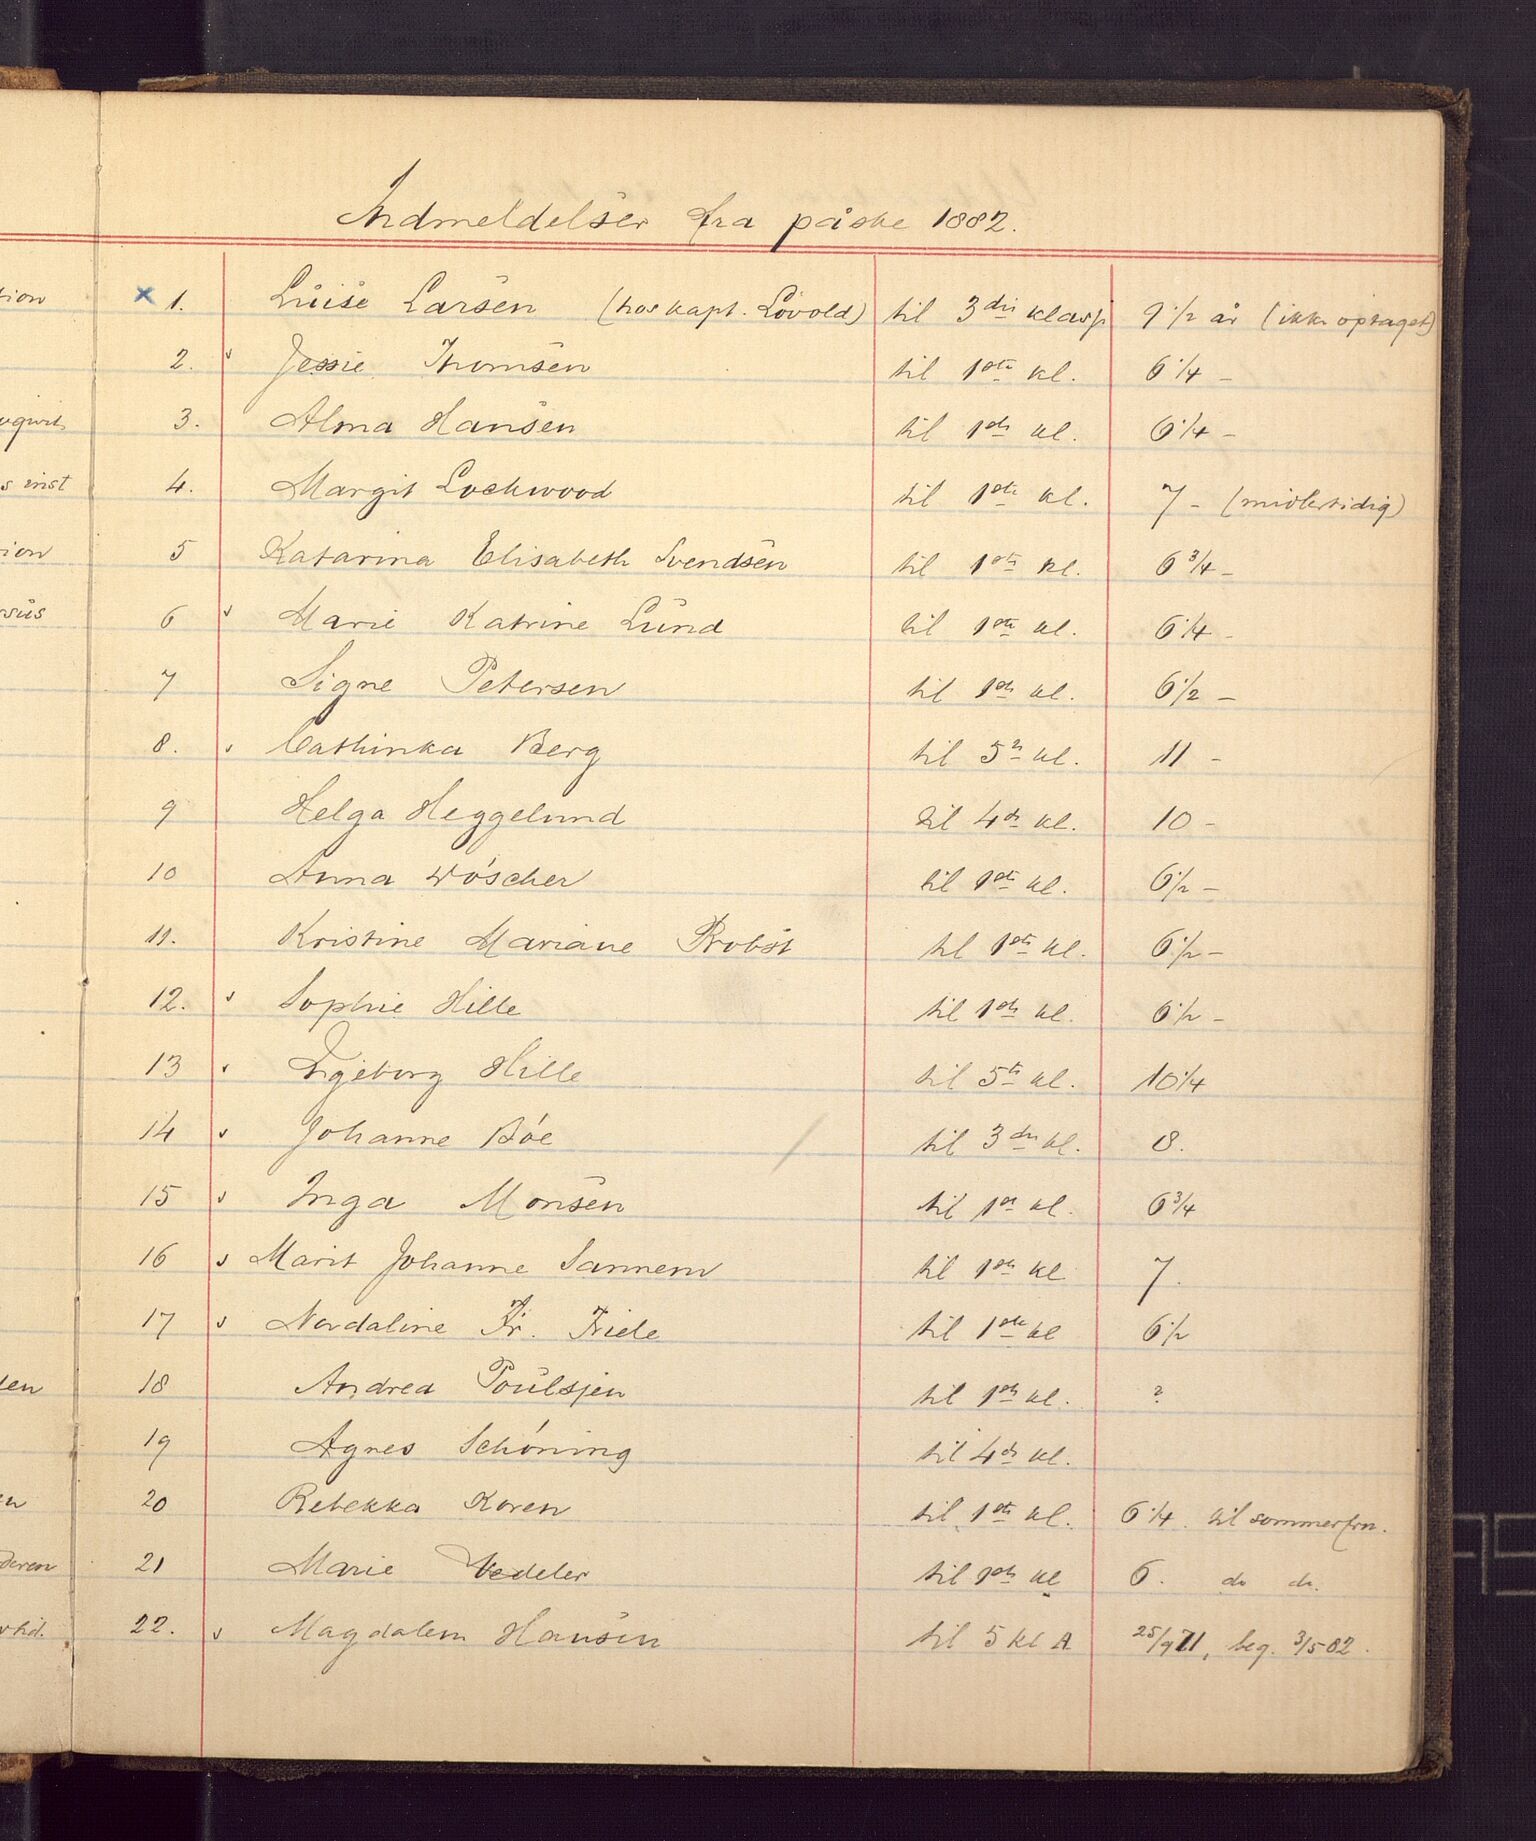 Indmeldelser fra påske 1882.
x 1. Luise Larsen (hos kapt. Lövold) til 3die klasse 9 1/2 år (ikke optaget)
2. Jessie Thomsen til 1ste kl. 6 1/4 –
3. Alma Hansen til 1ste kl. 6 1/4 –
4. Margit Lockwood til 1ste kl. 7 – (midlertidig)
5 Katarina Elisabeth Svendsen til 1ste kl. 6 3/4 –
6 Marie Katrine Lund til 1ste kl. 6 1/4 –
7 Signe Petersen til 1ste kl. 6 1/2 –
8. Cathinka Berg til 5te kl. 11 –
9 Helga Heggelund til 4de kl. 10 –
10 Anna Wöscher til 1ste kl. 6 1/2 –
11. Kristine Mariane Probst til 1ste kl. 6 1/2 –
12. Sophie Hille til 1ste kl. 6 1/2 –
13 Ingeborg Hille til 5te kl. 10 1/4
14 Johanne Böe til 3die kl. 8.
15 Inga Monsen til 1ste kl. 6 3/4
16 Marit Johanne Sannem til 1ste kl 7.
17 Nordaline Fr. Friele til 1ste kl 6 1/2
18 Andrea Poulsjen til 1ste kl. ?
19 Agnes Schöning til 4de kl.
20 Rebekka Koren til 1ste kl. 6 1/4. til sommerfrn.
21 Marie Vedeler til 1ste kl 6. do do.
22. Magdalem Hansen til 5 kl A 25/9 71, beg. 3/5 82.